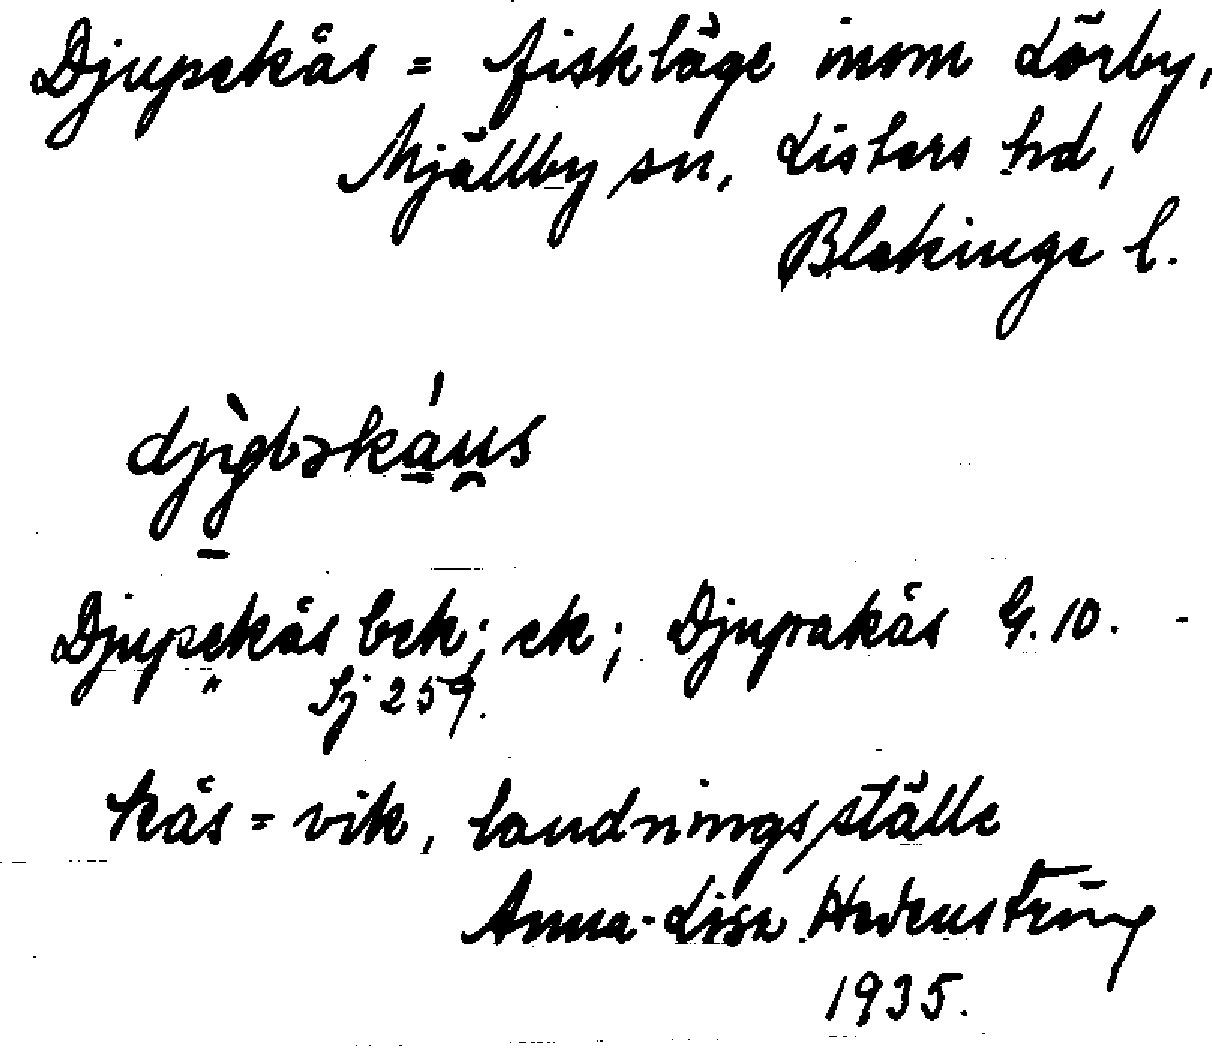 Djupekås = fiskläge inom Lörby,
Mjällby sn, Listers hd,
Blekinge l.
Djupekås bek; ek; Djupakås G. 10. -
" Sj 259.
kås = vik, landningsställe
Anna-Lisa Hedenström
1935.